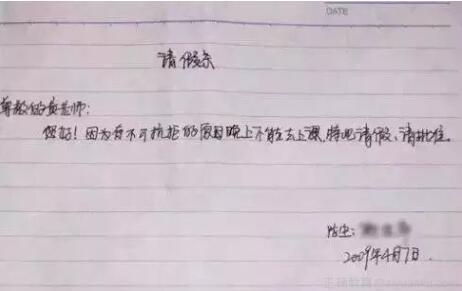 DATE
请假条
尊敬的老师:
您好!因为有不可抗拒的原因晚上不能去上课,特此请假、请批准.
学生:
2009年4月7日.